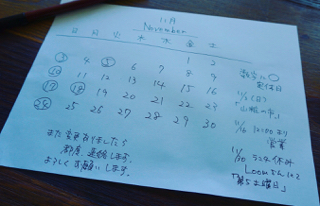 11月
November
日 月 火 水 木 金 土
1 2
3 4 5 6 7 8 9
10 11 12 13 14 15 16
17 18 19 20 21 22 23
24 25 26 27 28 29 30
また変更ありましたら
都度、連絡します。
よろしくお願いします。
11/3(日)
「山眠の市」
12:00より
営業
11/30
Loomさんにて
「第5土曜日」